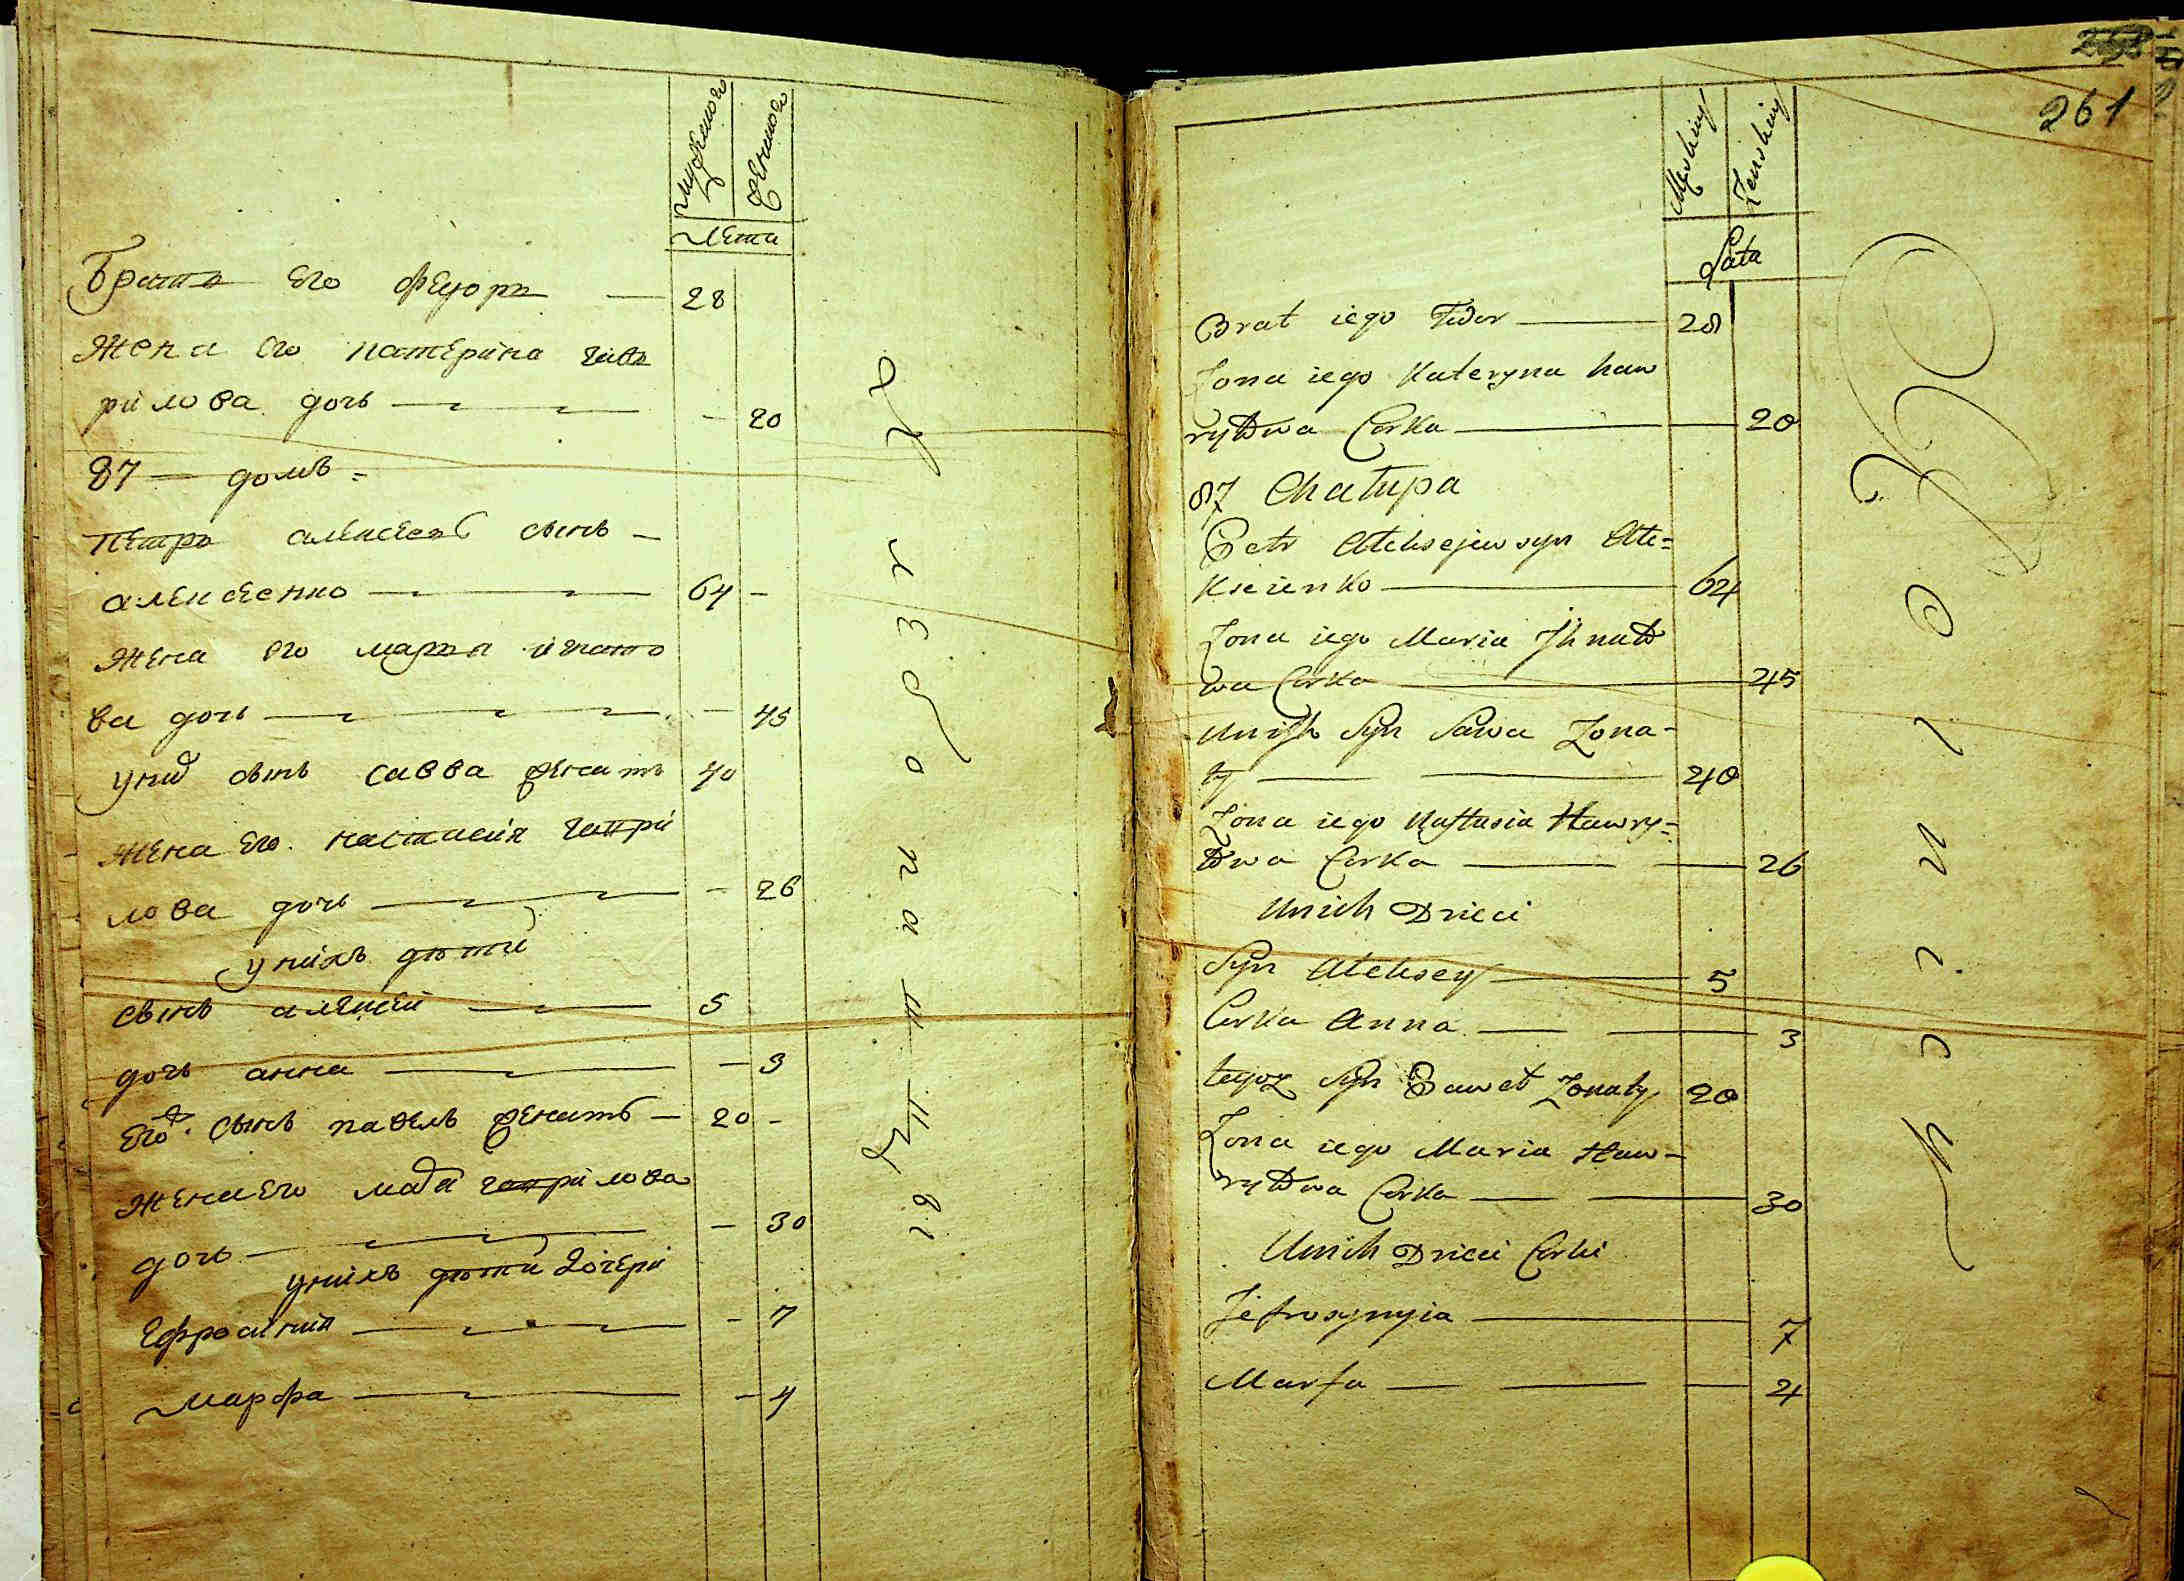 мужеского женского
лета
Братъ его федоръ — 28
Жена его катерина гав
рилова дочь — — 20
87 — домъ =
петръ алексеевъ сынъ —
алексеенко — 64 —
жена его марья игнато
ва дочь — — 45
у них сынъ савва женатъ 40
жена его настасия гаври
лова дочь — — 26
у нихъ дети
сынъ алексей — 5
дочь анна — — 3
его ж сынъ павелъ женатъ — 20 —
жена его гаврилова
дочь — — 30
у нихъ дети дочери
Ефросиния — — 7
марфа — — 4
261
Męskiey Zenskiey
Lata
Brat iego Fedor — 28
Zona iego Kateryna haw
ryłowa Corka — 20
87 Chałupa
Petr Aleksejew syn Ale=
ksieienko — 64
Zona iego Maria Jhnato
wa Corka — 45
Unich Syn Sawa Zona-
ty — — 40
Zona iego Nastasia Hawry=
łowa Corka — — 26
Unich Dzieci
Syn Aleksey — 5
Corka Anna — — 3
tegoz Syn Paweł Zonaty 20
Zona iego Maria Haw-
ryłowa Corka — — 30
Unich Dzieci Corki
Jefrosynyia — 7
Marfa — — — 4